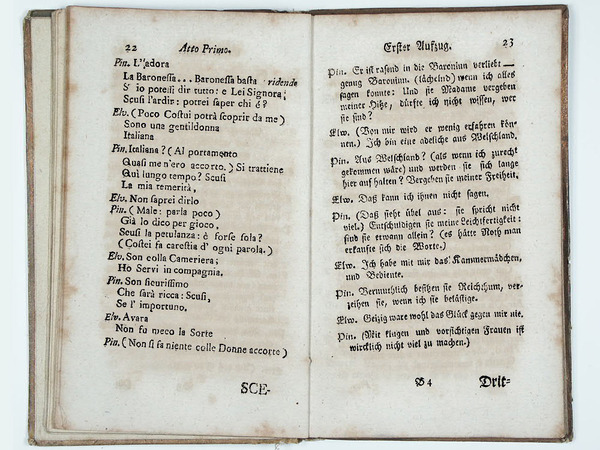 22 Atto Primo.
Pin. L'adora
La Baronessa... Baronessa basta ridendo
S' io potessi dir tutto: e Lei Signora;
Scusi l'ardir: potrei saper chi é?
Elv. (Poco Costui potrà scoprir da me)
Sono una gentildonna
Italiana
Pin. Italiana? (Al portamento
Quasi me n'ero accorto.) Si trattiene
Quì lungo tempo? Scusi
La mia temerità,
Elv. Non saprei dirlo
Pin. (Male: parla poco)
Già lo dico per gioco,
Scusi la petulanza: è forse sola?
(Costei fa carestìa d' ogni parola.)
Elv. Son colla Cameriera;
Ho Servi in compagnia.
Pin. Son sicurissimo
Che sarà ricca: Scusi,
Se l' importuno,
Elv. Avara
Non fu meco la Sorte
Pin. (Non si fa niente colle Donne accorte)
SCE-
Erster Aufzug. 23
Pin. Er ist rasend in die Baroninn verliebt —
genug Baroninn. (lächelnd) wenn ich alles
sagen könnte: Und sie Madame vergeben
meiner Hitze, dürfte ich nicht wissen, wer
sie sind?
Elw. (Von mir wird er wenig erfahren kön-
nen.) Ich bin eine adeliche aus Welschland.
Pin. Aus Welschland? (als wenn ich zurecht
gekommen wäre) und werden sie sich lange
hier aufhalten? Vergeben sie meiner Freiheit.
Elw. Daß kann ich ihnen nicht sagen.
Pin. (Daß sieht übel aus: sie spricht nicht
viel.) Entschuldigen sie meine Leichtfertigkeit:
sind sie etwann allein? (es hätte Noth man
erkaufte sich die Worte.)
Elw. Ich habe mit mir das Kammermädchen,
und Bediente.
Pin. Vermuthlich besitzen sie Reichthum, ver-
zeihen sie, wenn ich sie belästige.
Elw. Geizig ware wohl das Glück gegen mir nie.
Pin. (Mit klugen und vorsichtigen Frauen ist
wircklich nicht viel zu machen.)
B 4 Drit-